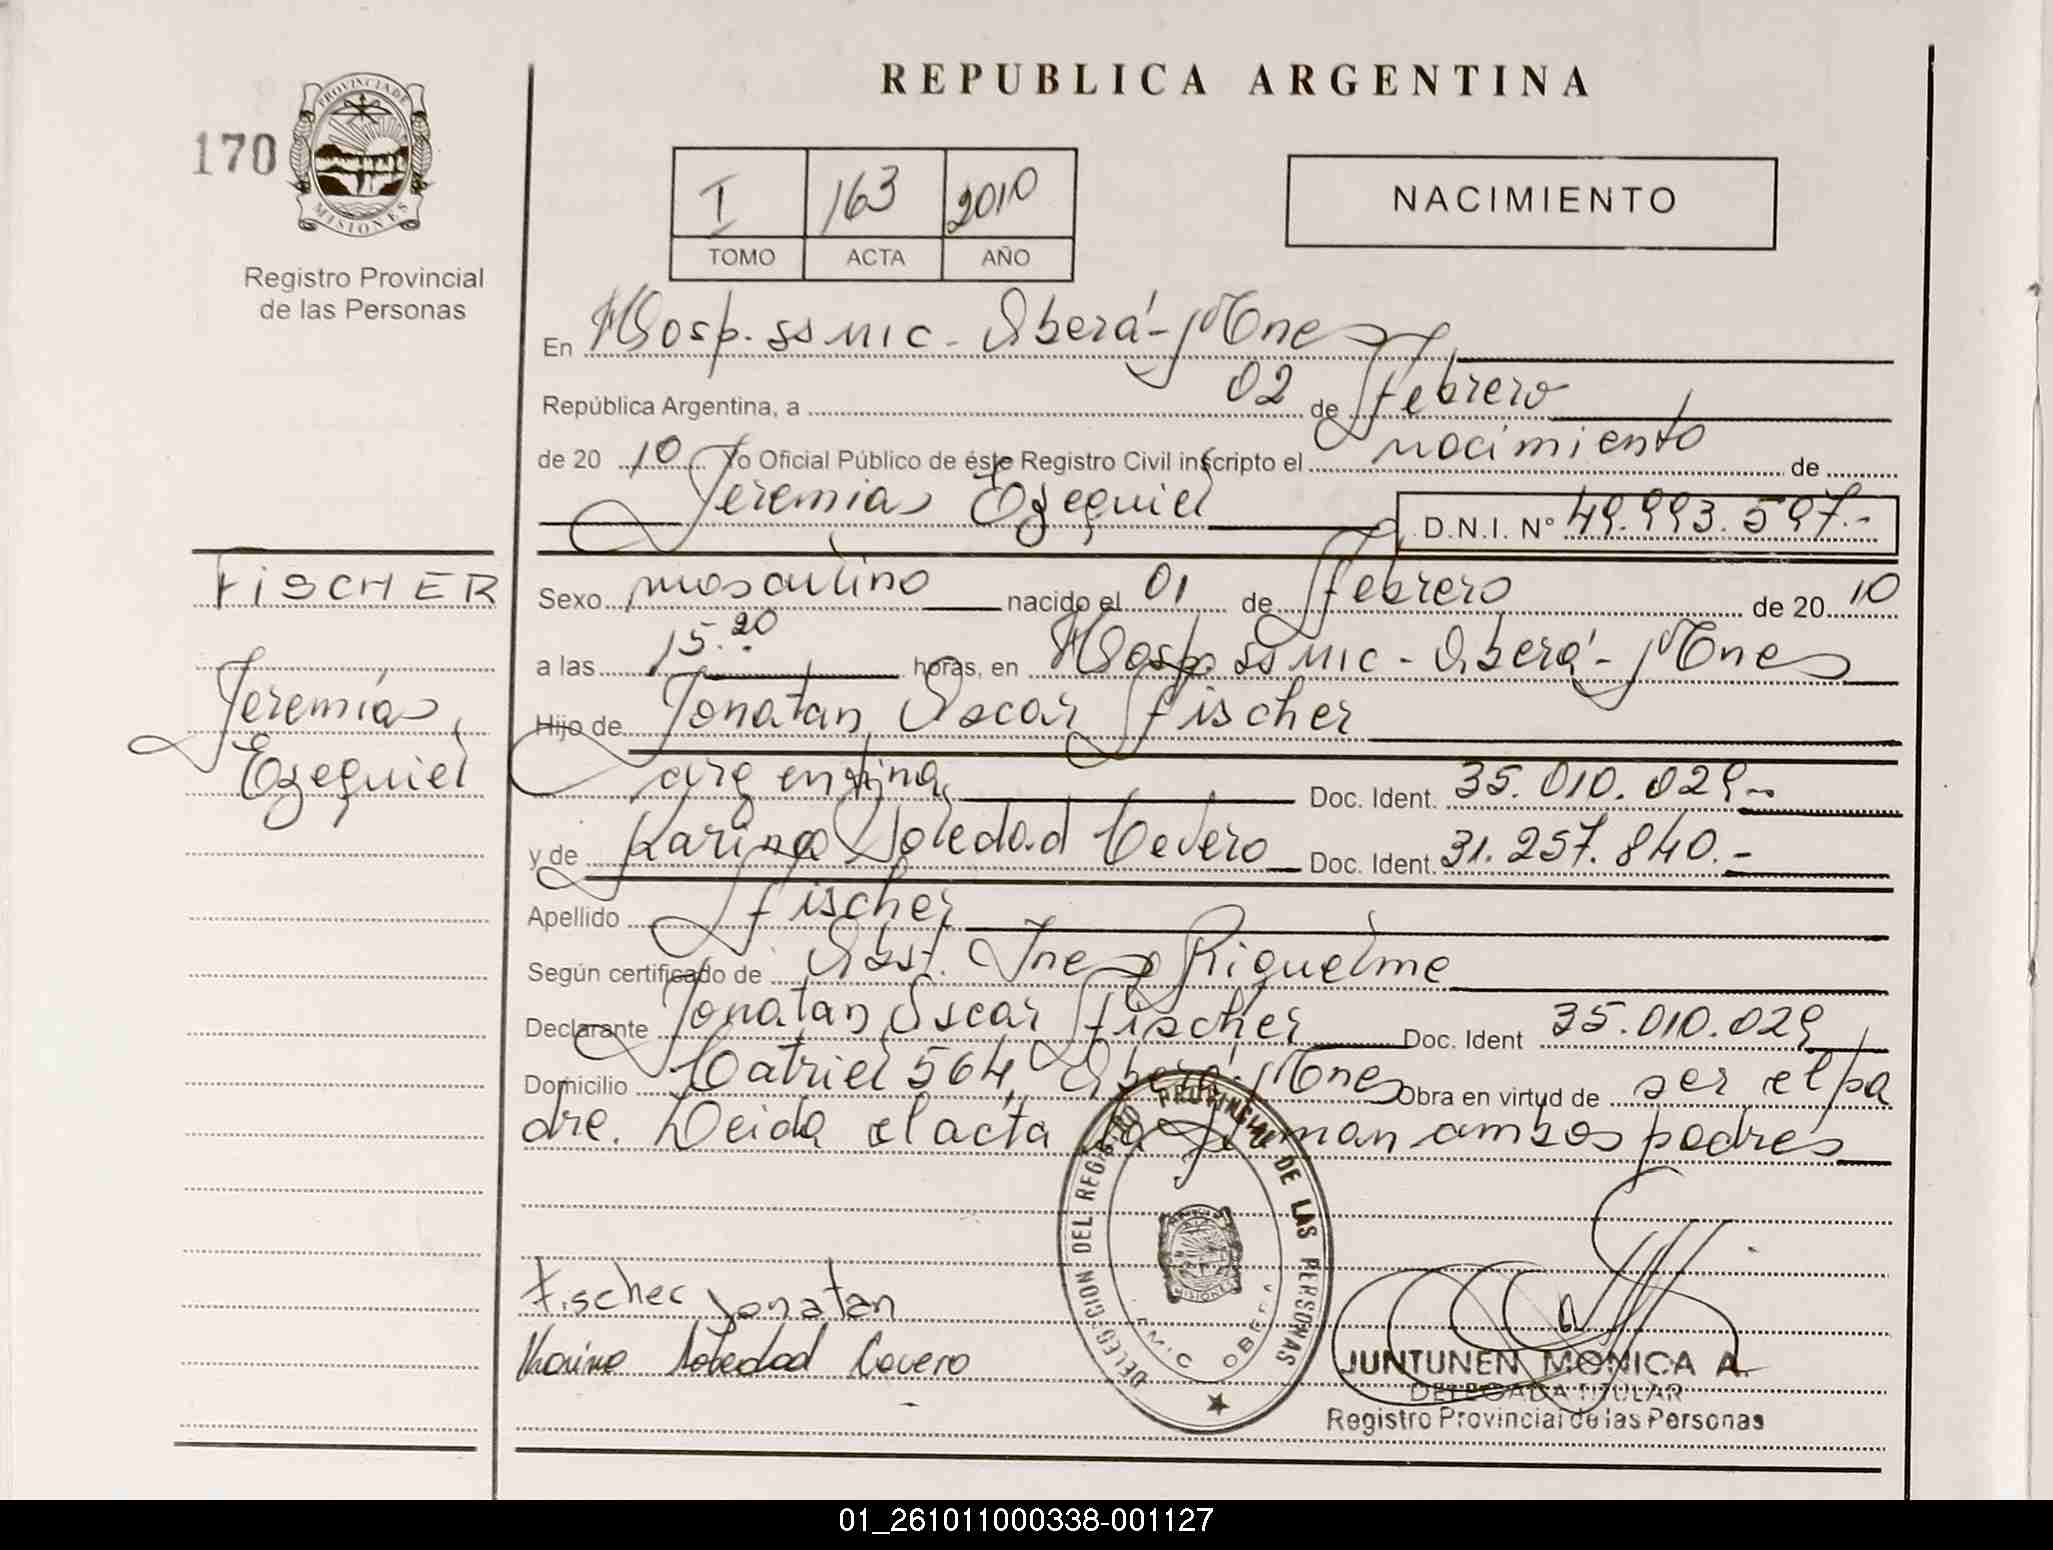 REPUBLICA ARGENTINA
170
PROVINCIA DE
MISIONES
Registro Provincial
de las Personas
I 163 2010
TOMO ACTA AÑO
NACIMIENTO
En Hosp. SSMIC - Oberá - Mnes
República Argentina, a 02 de febrero
de 20 10 Yo Oficial Público de éste Registro Civil inscripto el nacimiento de
Jeremías Ezequiel D.N.I. Nº 49.993.597.-
FISCHER
Jeremías
Ezequiel
Sexo masculino nacido el 01 de febrero de 20 10
a las 15.20 horas, en Hosp. SSMIC - Oberá - Mnes
Hijo de Jonatan Oscar Fischer
argentina Doc. Ident. 35.010.029-
y de Karina Soledad Cavero Doc. Ident. 31.257.840.-
Apellido Fischer
Según certificado de Obst. Ines Riquelme
Declarante Jonatan Oscar Fischer Doc. Ident 35.010.029
Domicilio Catriel 564, Oberá - Mnes Obra en virtud de ser el pa
dre. Leida el acta la firman ambos padres
DELEGACION DEL REGISTRO PROVINCIAL DE LAS PERSONAS
MISIONES
OBERA
Fischer Jonatan
Karina Soledad Cavero
JUNTUNEN MONICA A.
DELEGADA TITULAR
Registro Provincial de las Personas
01_261011000338-001127